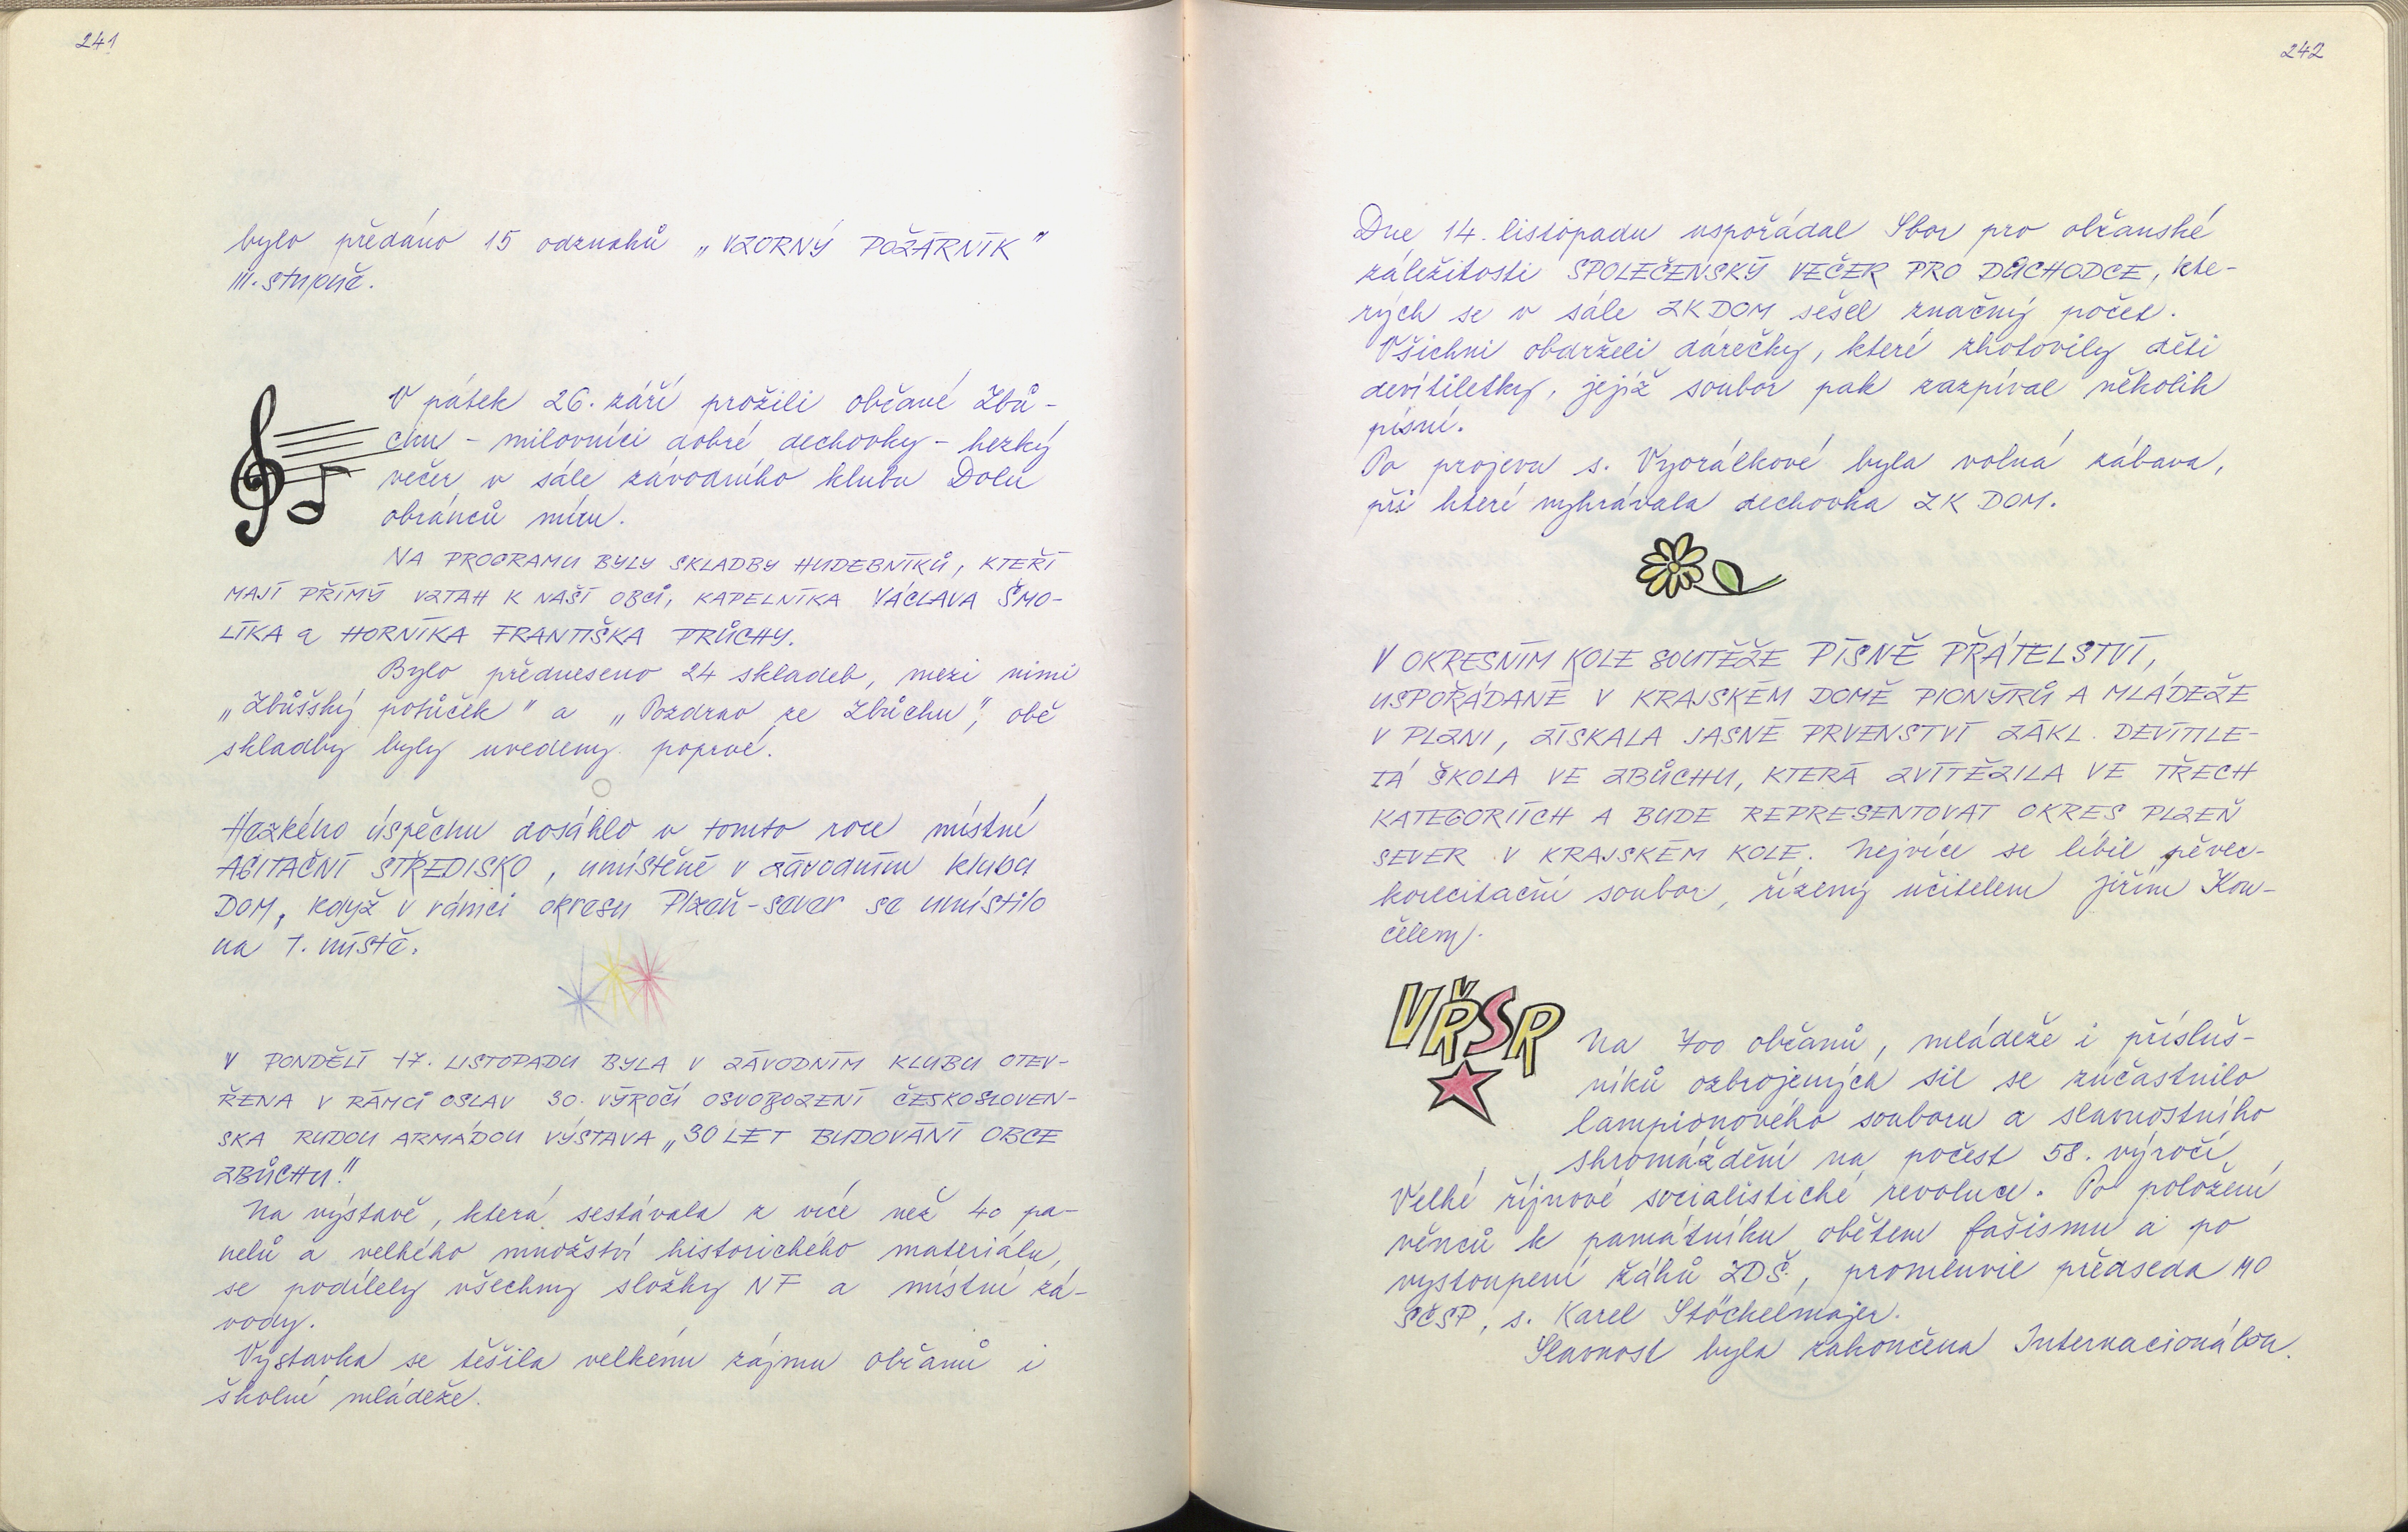 241
bylo předáno 15 odznaků „VZORNÝ POŽÁRNÍK"
III. stupně.
V pátek 26. září prožili občané Zbů-
chu - milovníci dobré dechovky - hezký
večer v sále závodního klubu Dolu
obránců míru.
NA PROGRAMU BYLY SKLADBY HUDEBNÍKŮ, KTEŘÍ
MAJÍ PŘÍMÝ VZTAH K NAŠÍ OBCI, KAPELNÍKA VÁCLAVA ŠMO-
LÍKA a HORNÍKA FRANTIŠKA PRŮCHY.
Bylo předneseno 24 skladeb, mezi nimi
„Zbůšský potůček" a „Pozdrav ze Zbůchu", obě
skladby byly uvedeny poprvé.
Hezkého úspěchu dosáhlo v tomto roce místní
AGITAČNÍ STŘEDISKO, umístěné v závodním klubu
DOM, když v rámci okresu Plzeň-sever se umístilo
na 1. místě.
V PONDĚLÍ 17. LISTOPADU BYLA V ZÁVODNÍM KLUBU OTEV-
ŘENA V RÁMCI OSLAV 30. VÝROČÍ OSVOBOZENÍ ČESKOSLOVEN-
SKA RUDOU ARMÁDOU VÝSTAVA „30 LET BUDOVÁNÍ OBCE
ZBŮCHU!"
Na výstavě, která sestávala z více než 40 pa-
nelů a velkého množství historického materiálu,
se podílely všechny složky NF a místní zá-
vody.
Výstavka se těšila velkému zájmu občanů i
školní mládeže.
242
Dne 14. listopadu uspořádal Sbor pro občanské
záležitosti SPOLEČENSKÝ VEČER PRO DŮCHODCE, kte-
rých se v sále ZK DOM sešel značný počet.
Všichni obdrželi dárečky, které zhotovily děti
devítiletky, jejíž soubor pak zazpíval několik
písní.
Po projevu s. Vyorálkové byla volná zábava,
při které vyhrávala dechovka ZK DOM.
V OKRESNÍM KOLE SOUTĚŽE PÍSNĚ PŘÁTELSTVÍ,
USPOŘÁDANÉ V KRAJSKÉM DOMĚ PIONÝRŮ A MLÁDEŽE
V PLZNI, ZÍSKALA JASNÉ PRVENSTVÍ ZÁKL. DEVÍTILE-
TÁ ŠKOLA VE ZBŮCHU, KTERÁ ZVÍTĚZILA VE TŘECH
KATEGORIÍCH A BUDE REPRESENTOVAT OKRES PLZEŇ
SEVER V KRAJSKÉM KOLE. Nejvíce se líbil pěvec-
korecitační soubor, řízený učitelem Jiřím Kon-
čelem.
VŘSR
Na 700 občanů, mládeže i přísluš-
níků ozbrojených sil se zúčastnilo
lampionového souboru a slavnostního
shromáždění na počest 58. výročí
Velké říjnové socialistické revoluce. Po položení
věnců k památníku obětem fašismu a po
vystoupení žáků ZDŠ, promluvil předseda MO
SČSP, s. Karel Stöckelmajer.
Slavnost byla zakončena Internacionálou.